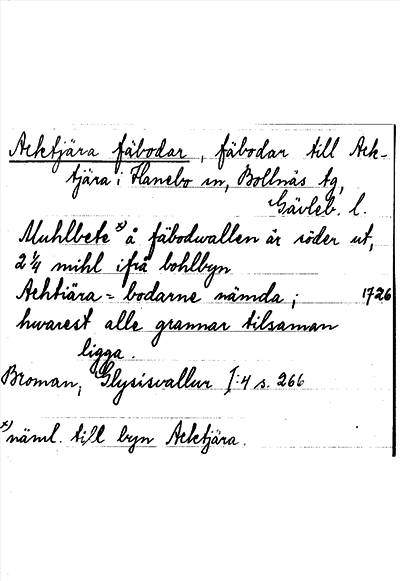 Acktjära fäbodar, fäbodar till Ack-
tjära i Hanebo sn, Bollnäs tg,
Gävleb. l.
Muhlbete x) å fäbodwallen är söder ut,
2 1/4 mihl ifrå bohlbyn
Achtiära = bodarne nämda; 1726
hwarest alle grannar tilsaman
ligga.
Broman, Glysisvallur I:4 s. 266
x) näml. till byn Acktjära.